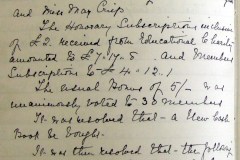 and Miss May Crisp
The Honorary Subscriptions exclusive
of £2. received from Educational Charity
amounted to £7-17-8 and Members
Subscriptions to £4.12.1
The usual Bonus of 5/- was
unanimously voted to 38 members
It was resolved that a New Cash
Book be bought.
It was then resolved that the following